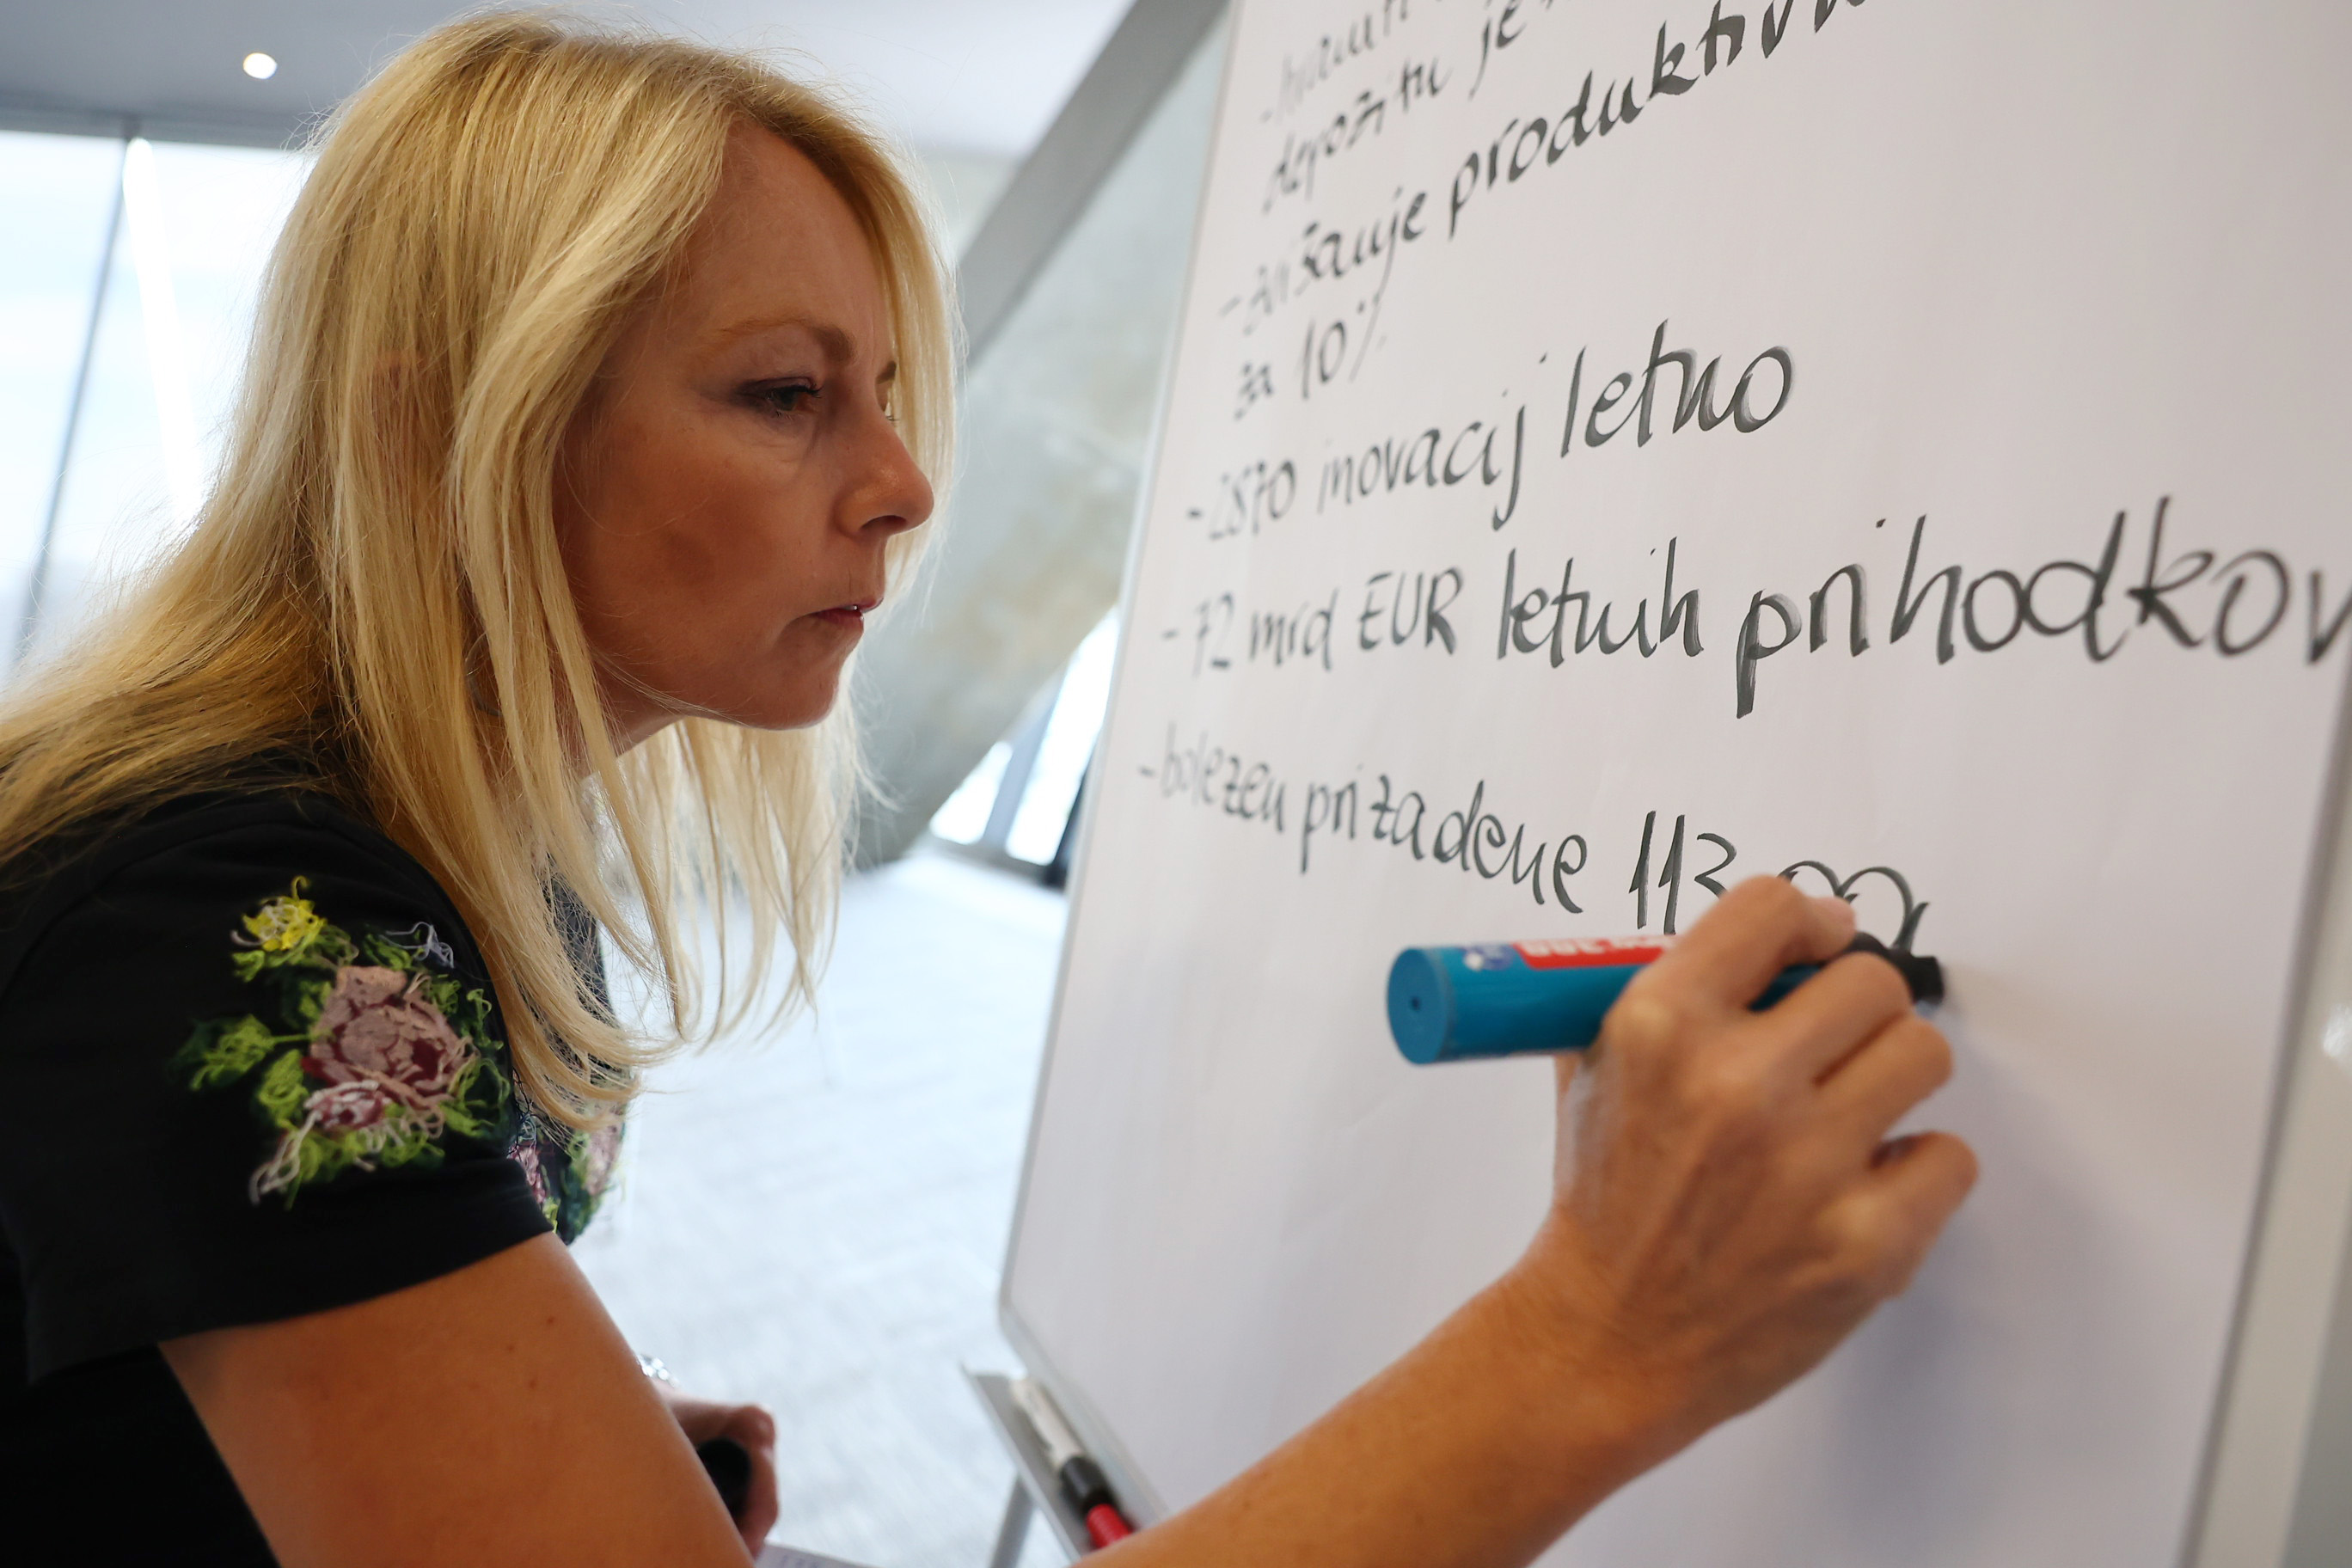 - hraniti
depozitu je
- zvišanje produktivn
za 10%
- 2870 inovacij letno
- 72 mrd EUR letnih prihodkov
- bolezen prizadene 113.00